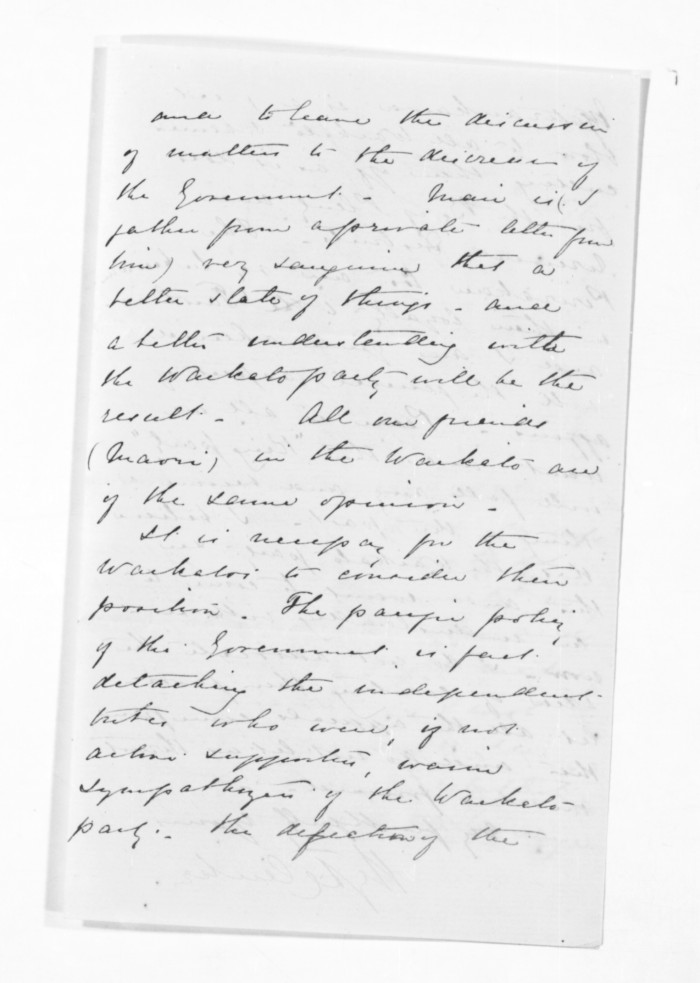 and to leave the discussion
of matters to the discretion of
the Government - Mair is (I
gather from a private letter from
him) very sanguine that a
better state of things - and
a better understanding with
the Waikato party, will be the
result - All our friends
(Maori) in the Waikato are
of the same opinion -
It is necessary for the
Waikatos to consider their
position - The pacific policy
of the Government is fast
detaching the independent
tribes who were, if not
active supporters, warm
sympathizers of the Waikato
party - the defection of the